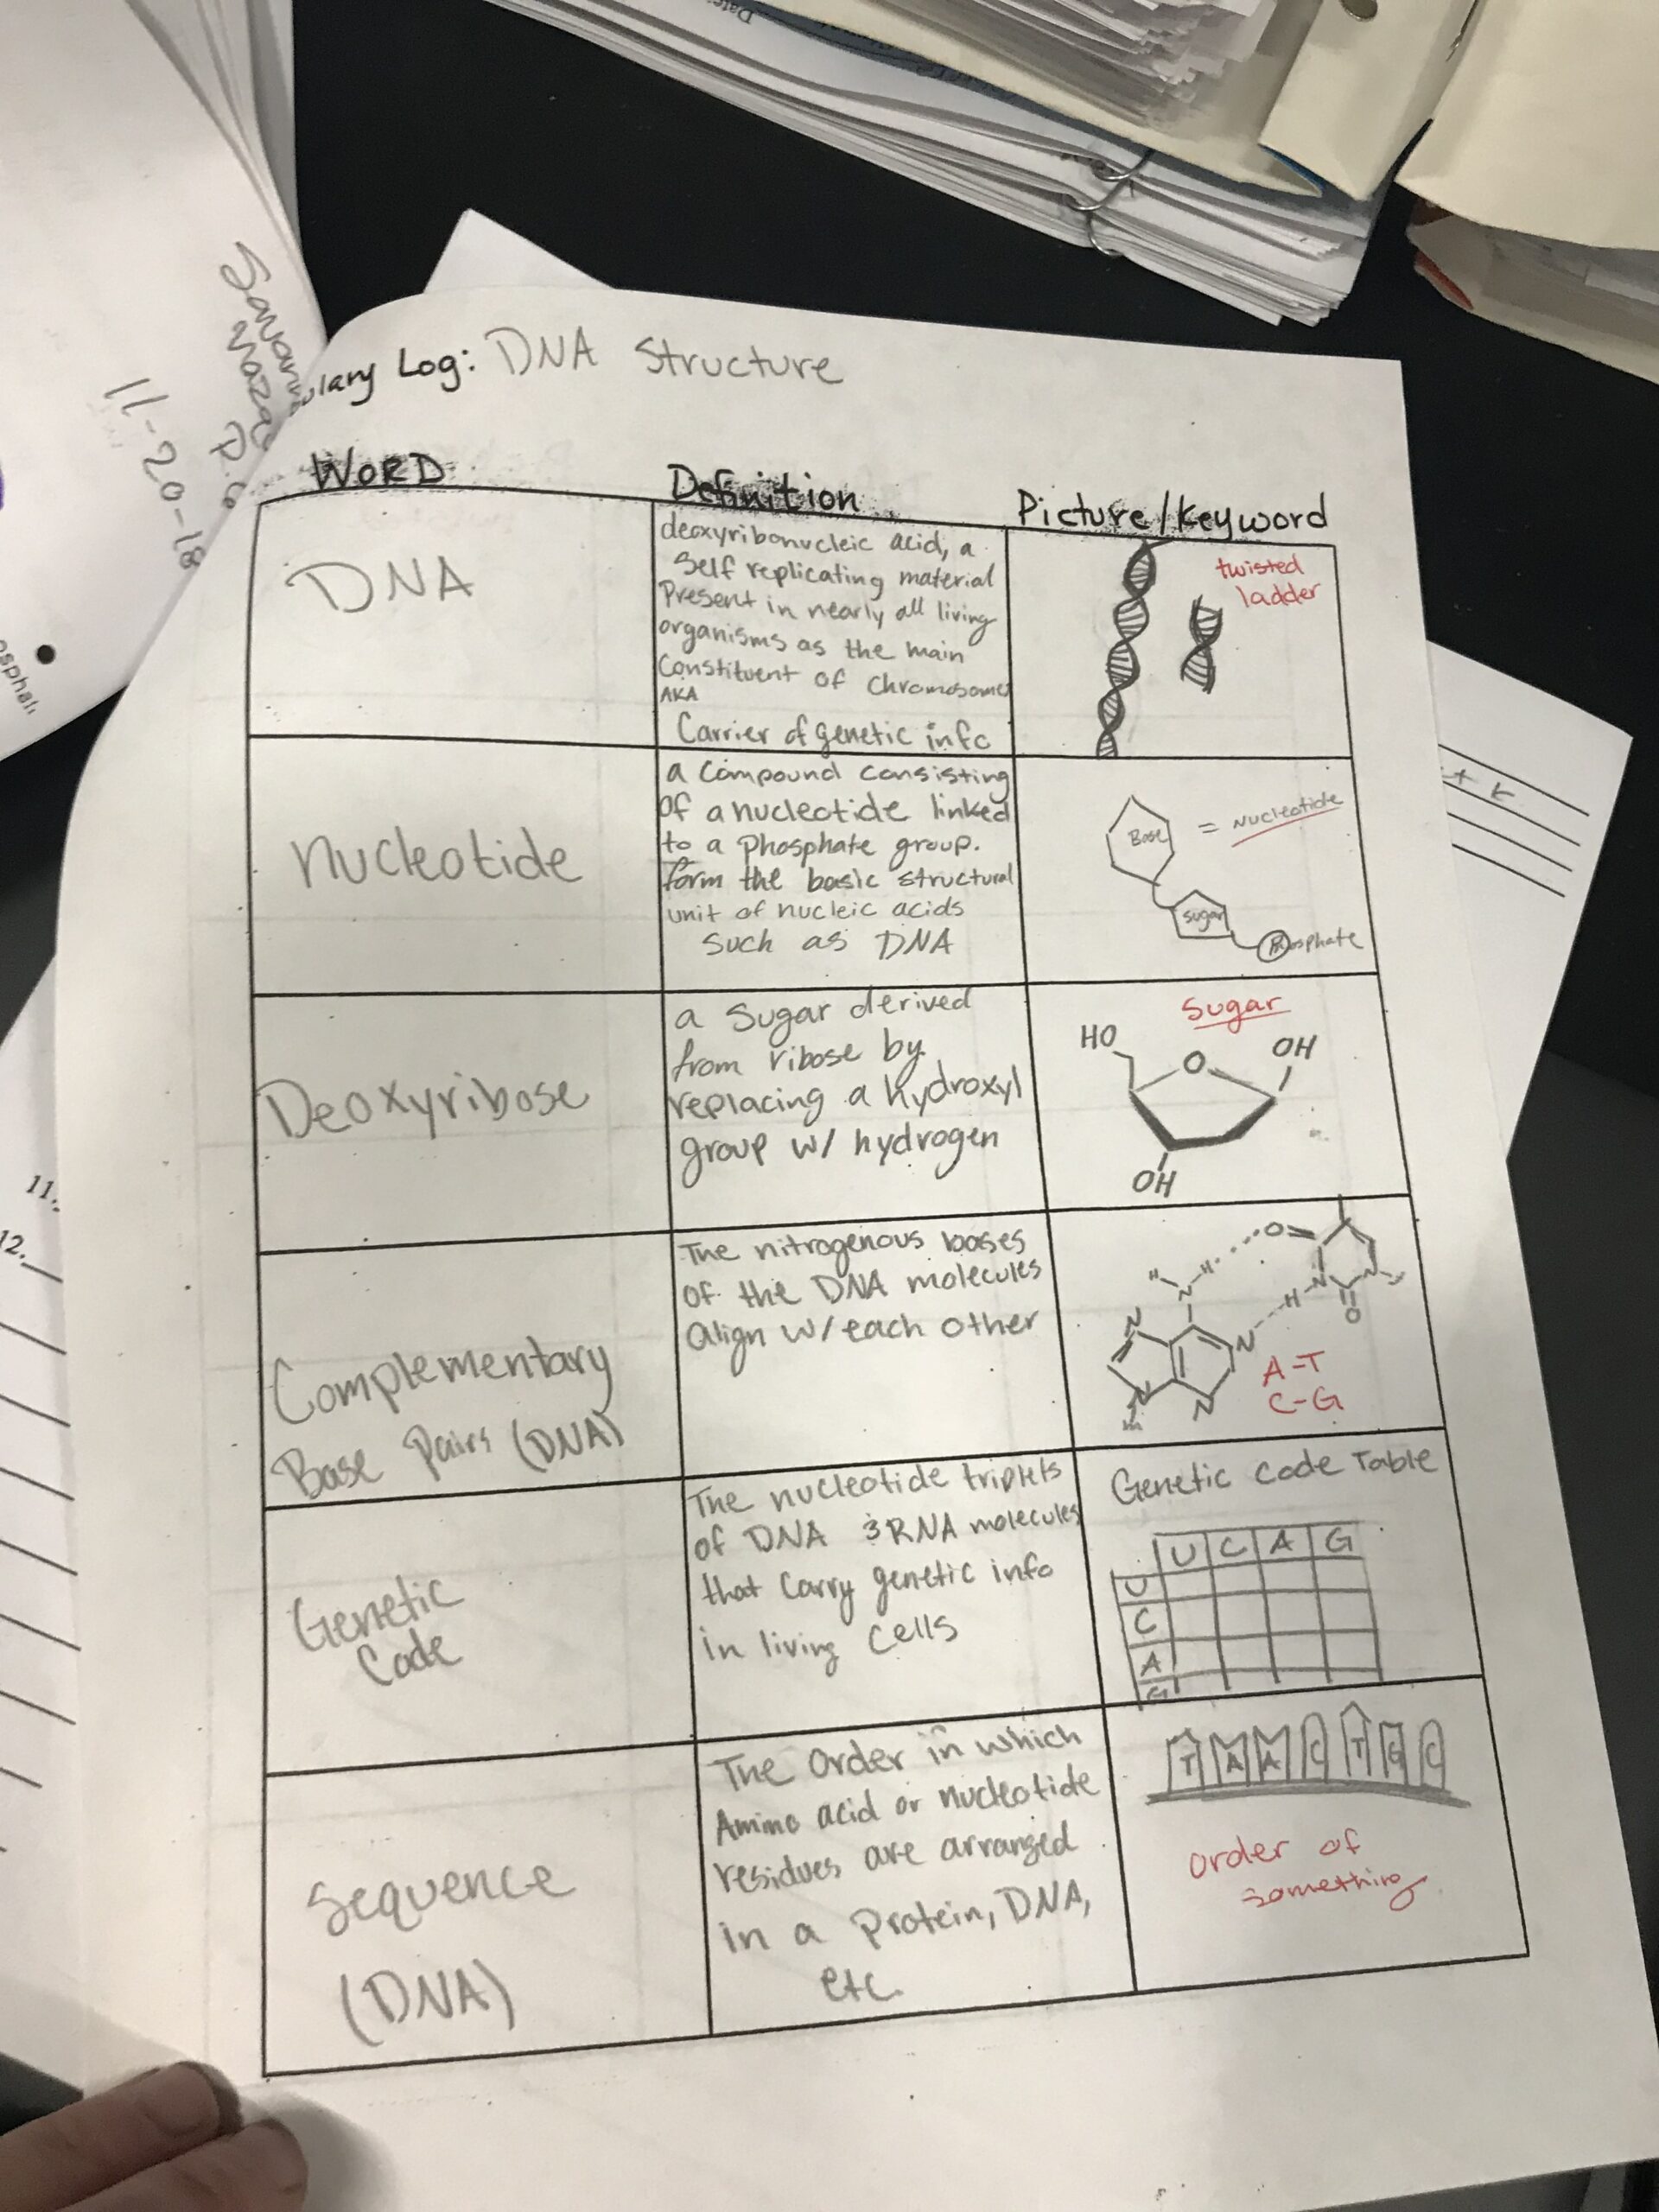 Date:
11-20-18
ulary Log: DNA Structure
WORD
Definition
Picture/Keyword
DNA
deoxyribonucleic acid, a
Self replicating material
Present in nearly all living
organisms as the main
Constituent of Chromosomes
AKA
Carrier of genetic info
twisted
ladder
Nucleotide
a Compound consisting
of a nucleotide linked
to a Phosphate group.
form the basic structural
unit of nucleic acids
such as DNA
Base
= Nucleotide
Sugar
Phosphate
Deoxyribose
a Sugar derived
from ribose by
replacing a hydroxyl
group w/ hydrogen
Sugar
HO
O
OH
OH
Complementary
Base Pairs (DNA)
The nitrogenous bases
of the DNA molecules
align w/ each other
O
H
H
N
H
N
N
O
N
N
N
N
A-T
C-G
Genetic
Code
The nucleotide triplets
of DNA & RNA molecules
that carry genetic info
in living cells
Genetic Code Table
U C A G
U
C
A
G
Sequence
(DNA)
The Order in which
Amino acid or nucleotide
residues are arranged
in a Protein, DNA,
etc.
T A A C T G C
order of
something
11.
12.